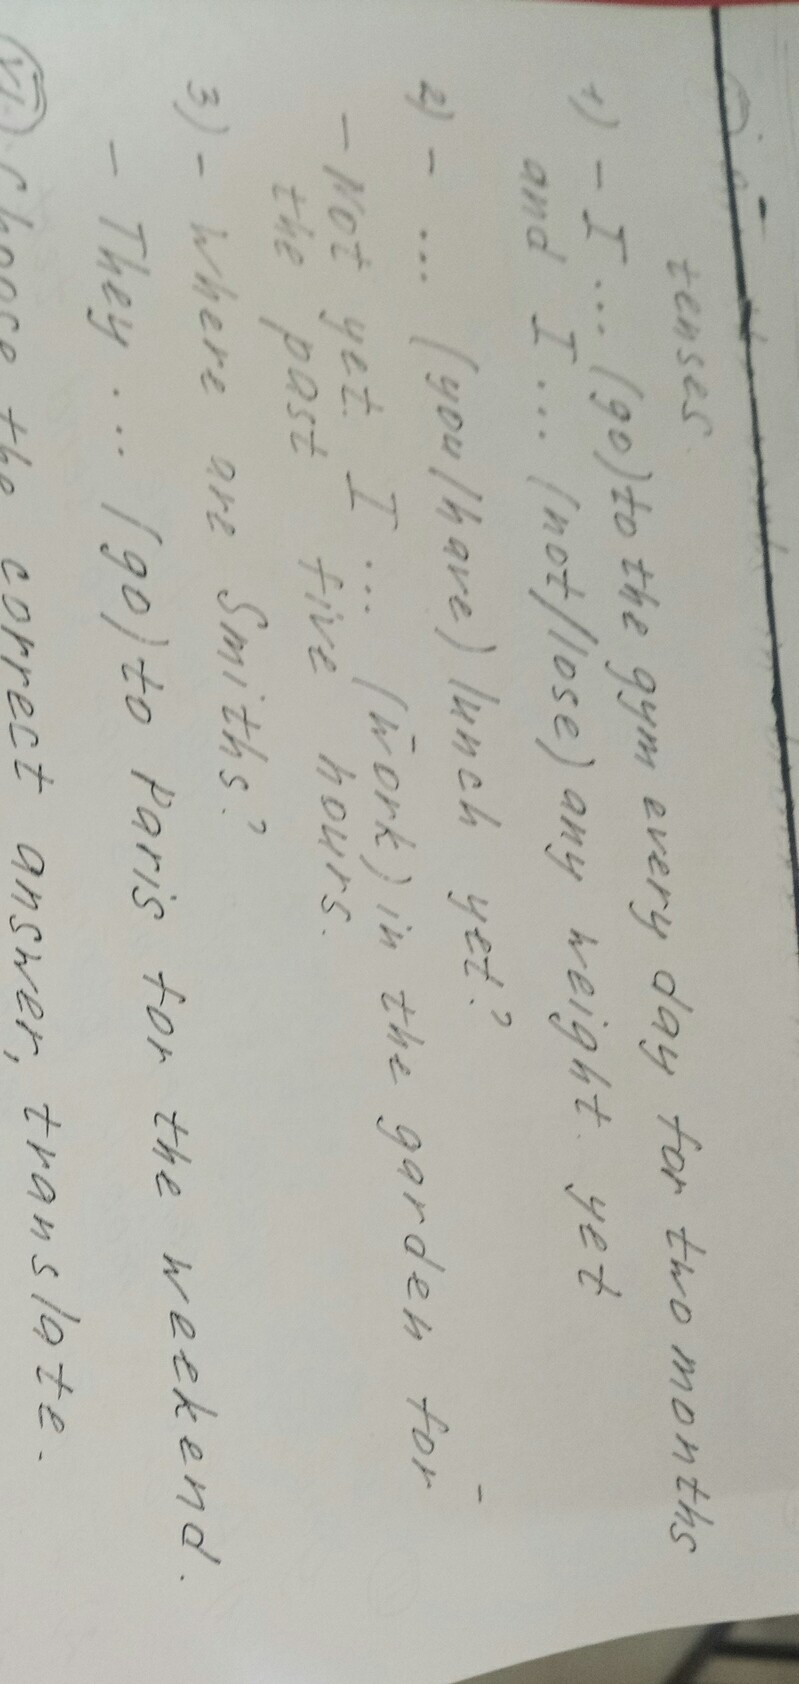 tenses.
1) - I ... (go) to the gym every day for two months
and I ... (not/lose) any weight. yet
2) - ... (you/have) lunch yet?
- Not yet. I ... (work) in the garden for
the past five hours.
3) - Where are Smiths?
- They ... (go) to Paris for the weekend.
VI. Choose the correct answer, translate.